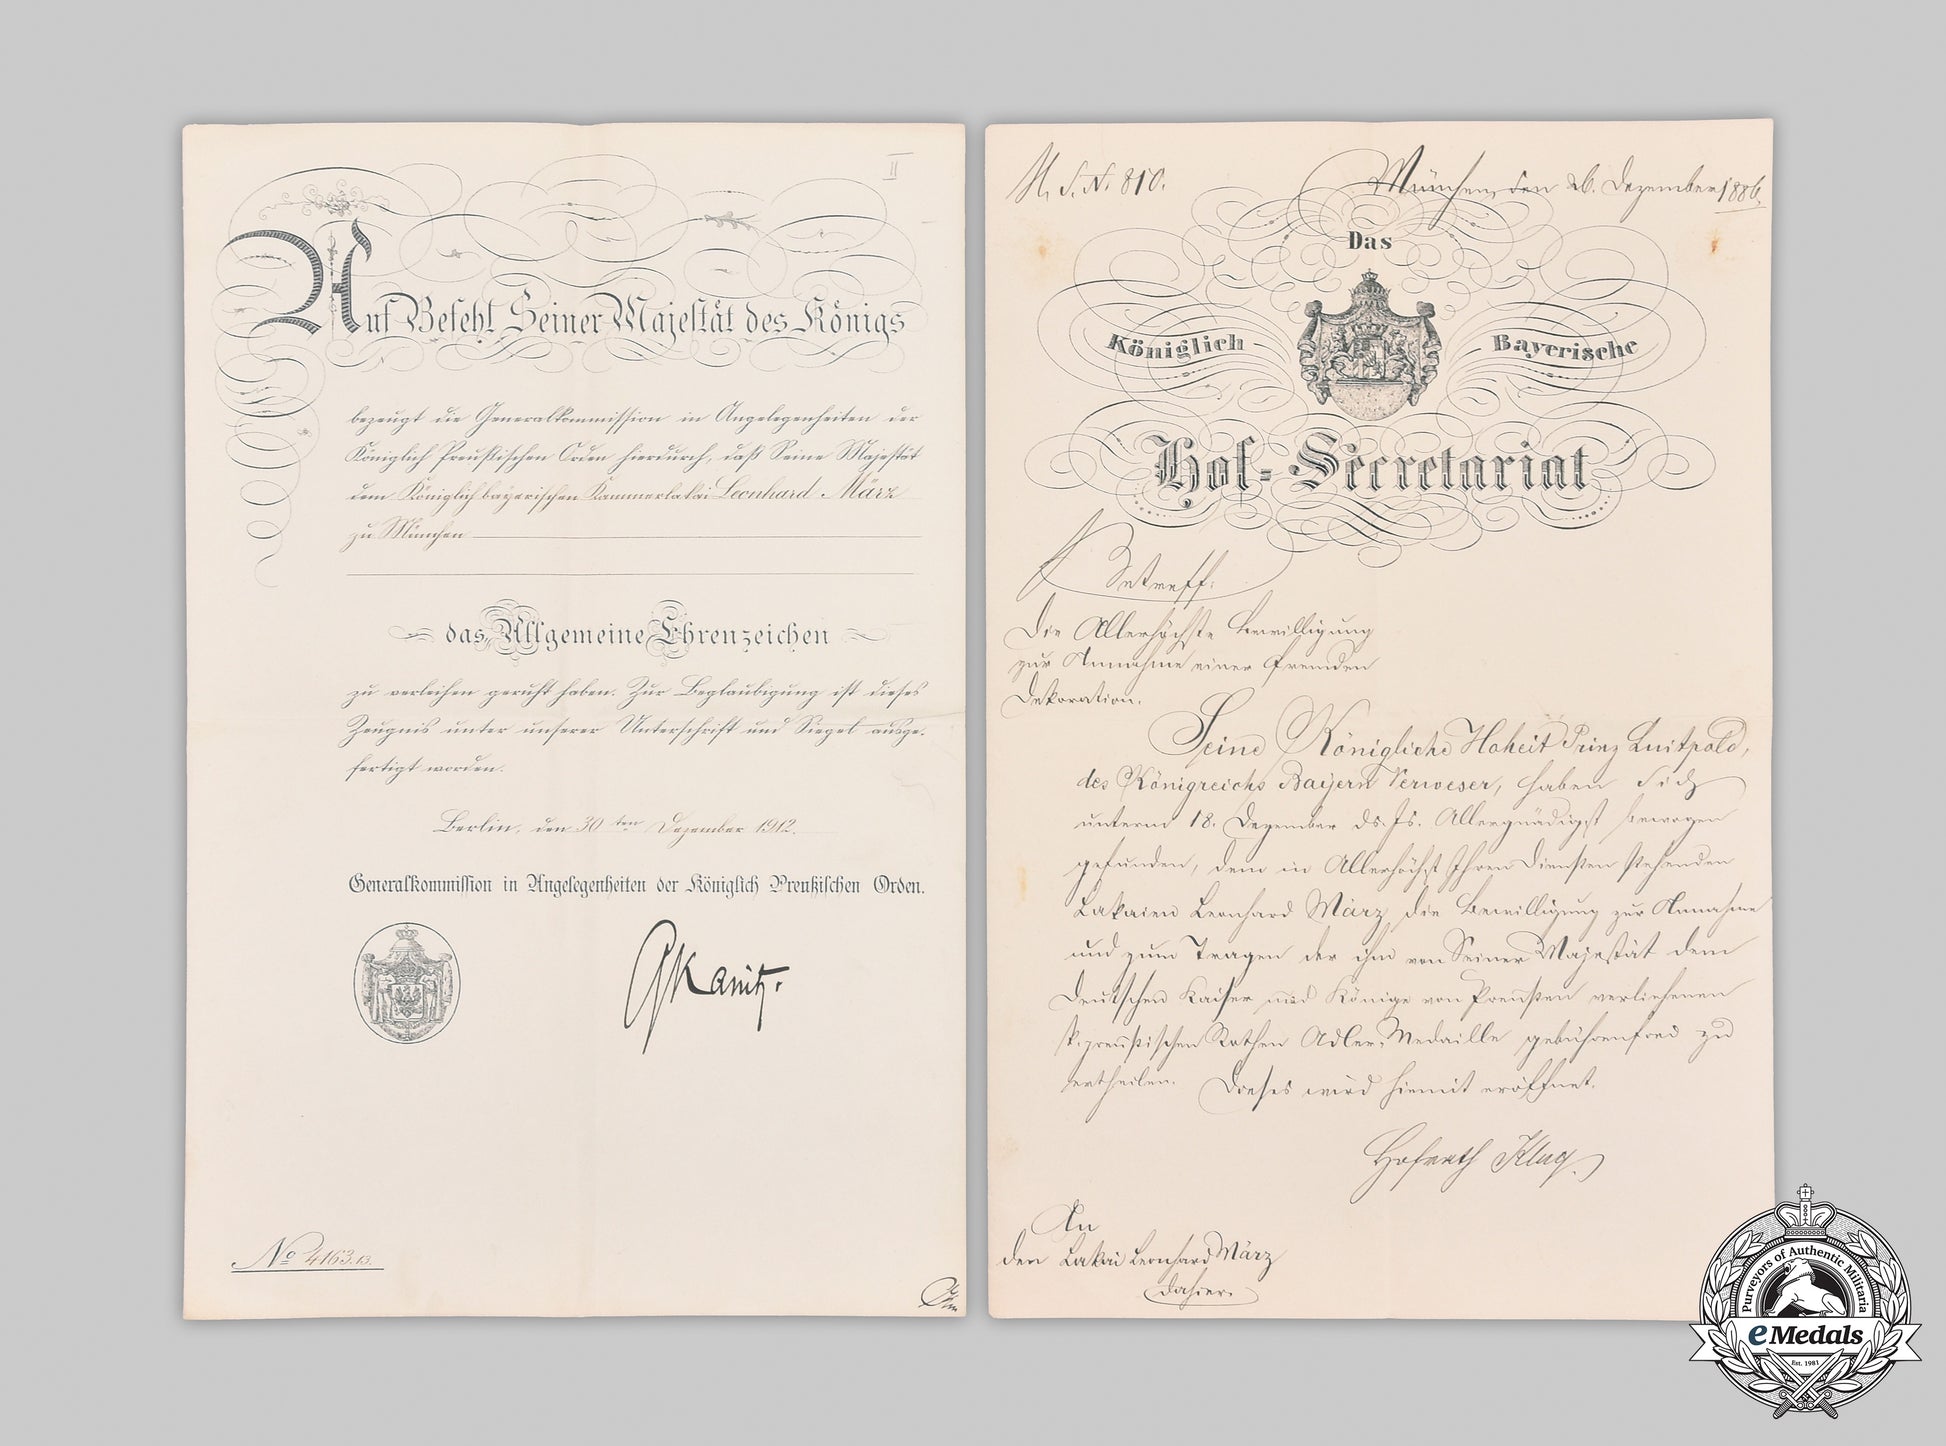 II
Auf Befehl Seiner Majestät des Königs
bezeugt die Generalkommission in Angelegenheiten der
Königlich Preußischen Orden hierdurch, daß Seine Majestät
dem Königlich bayerischen Kammerlakai Leonhard März
zu München
das Allgemeine Ehrenzeichen
zu verleihen geruht haben. Zur Beglaubigung ist dieses
Zeugnis unter unserer Unterschrift und Siegel ausge-
fertigt worden.
Berlin, den 30ten Dezember 1912.
Generalkommission in Angelegenheiten der Königlich Preußischen Orden.
Kanitz.
No 4163.13.
H. S. N. 810.
München, den 26. Dezember 1886.
Das
Königlich Bayerische
Hof-Secretariat
Betreff:
Die Allerhöchste Bewilligung
zur Annahme einer fremden
Dekoration.
Seine Königliche Hoheit Prinz Luitpold,
des Königreichs Bayern Verweser, haben Sich
unterm 18. Dezember ds. Js. Allergnädigst bewogen
gefunden, dem in Allerhöchst Ihren Diensten stehenden
Lakaien Leonhard März die Bewilligung zur Annahme
und zum Tragen der ihm von Seiner Majestät dem
Deutschen Kaiser und Könige von Preußen verliehenen
k. preußischen Rothen Adler-Medaille gebührenfrei zu
ertheilen. Dieses wird hiemit eröffnet.
Hofrath Klug.
An
den Lakai Leonhard März
dahier.
Purveyors of Authentic Militaria
eMedals
Est. 1983